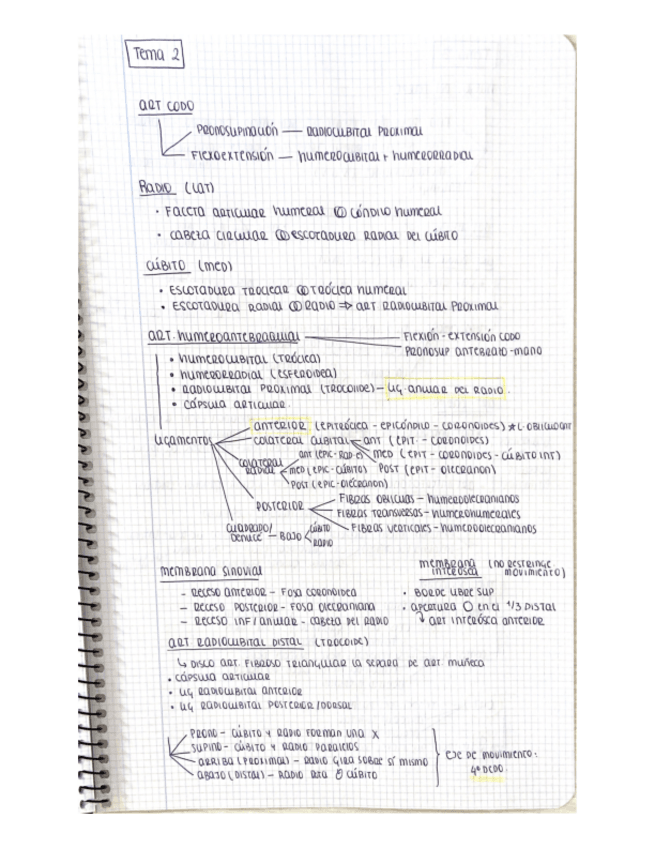 Tema 2
ART CODO
PRONOSUPINACIÓN — RADIOCUBITAL PROXIMAL
FLEXOEXTENSIÓN — HUMEROCUBITAL + HUMERORRADIAL
RADIO (LAT)
• FACETA ARTICULAR HUMERAL CÓNDILO HUMERAL
• CABEZA CIRCULAR ESCOTADURA RADIAL DEL CÚBITO
CÚBITO (MED)
• ESCOTADURA TROCLEAR TRÓCLEA HUMERAL
• ESCOTADURA RADIAL RADIO ⇒ ART RADIOCUBITAL PROXIMAL
ART. HUMEROANTEBRAQUIAL
FLEXIÓN - EXTENSIÓN CODO
PRONOSUP ANTEBRAZO - MANO
• HUMEROCUBITAL (TRÓCLEA)
• HUMERORRADIAL (ESFEROIDEA)
• RADIOCUBITAL PROXIMAL (TROCOIDE) — LIG. ANULAR DEL RADIO
• CÁPSULA ARTICULAR.
LIGAMENTOS
ANTERIOR (EPITRÓCLEA - EPICÓNDILO - CORONOIDES)
COLATERAL CUBITAL
ANT (EPIT. - CORONOIDES)
MED (EPIT - CORONOIDES - CÚBITO INT)
POST (EPIT - OLECRANON)
COLATERAL RADIAL
MED (EPIC - CÚBITO)
POST (EPIC - OLECRANON)
POSTERIOR
FIBRAS OBLICUAS - HUMEROOLECRANIANOS
FIBRAS TRANSVERSAS - HUMEROHUMERALES
FIBRAS VERTICALES - HUMEROOLECRANIANOS
CUADRADO/
DENUCÉ — BAJO
CÚBITO
RADIO
MEMBRANA SINOVIAL
- RECESO ANTERIOR - FOSA CORONOIDEA
- RECESO POSTERIOR - FOSA OLECRANIANA
- RECESO INF/ANULAR - CABEZA DEL RADIO
MEMBRANA INTERÓSEA (NO RESTRINGE MOVIMIENTO)
• BORDE LIBRE SUP
• APERTURA O EN EL 1/3 DISTAL
↳ ART INTERÓSEA ANTERIOR
ART RADIOCUBITAL DISTAL (TROCOIDE)
↳ DISCO ART. FIBROSO TRIANGULAR LA SEPARA DE ART. MUÑECA
• CÁPSULA ARTICULAR
• LIG RADIOCUBITAL ANTERIOR
• LIG RADIOCUBITAL POSTERIOR/DORSAL
PRONO - CÚBITO Y RADIO FORMAN UNA X
SUPINO - CÚBITO Y RADIO PARALELOS
ARRIBA (PROXIMAL) - RADIO GIRA SOBRE SÍ MISMO
ABAJO (DISTAL) - RADIO ROTA CÚBITO
EJE DE MOVIMIENTO:
4º DEDO.